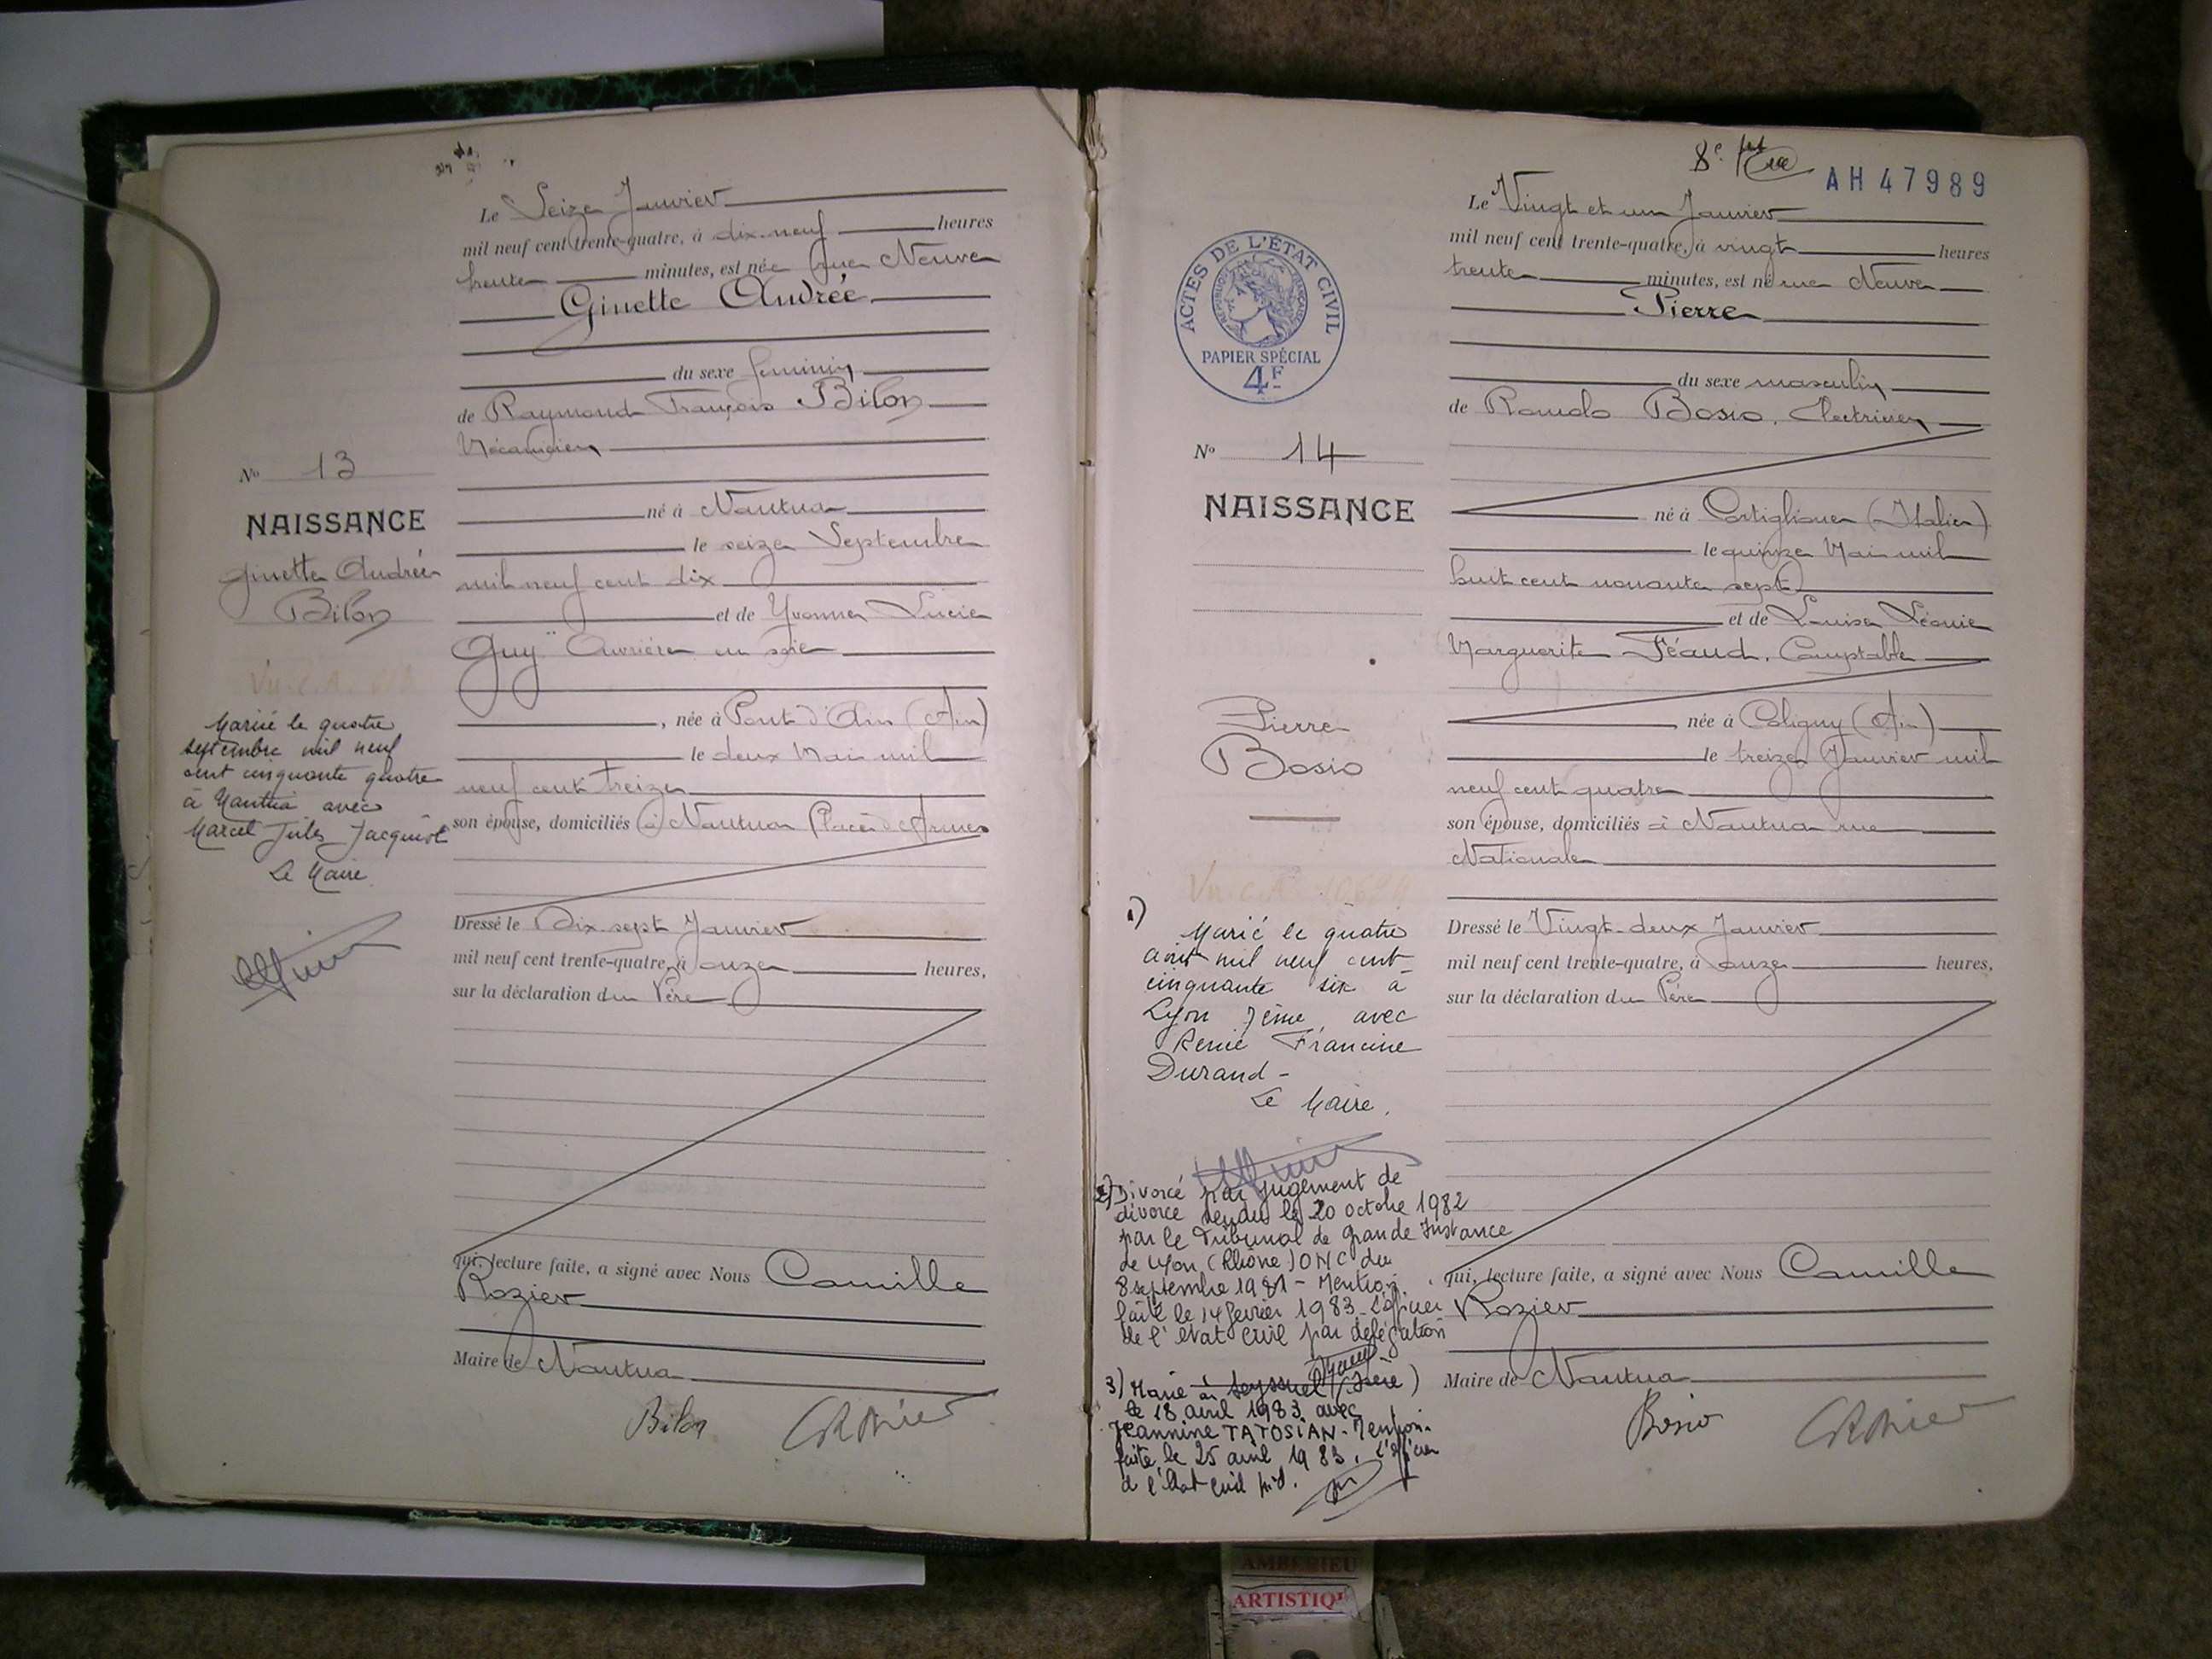 Le Seize Janvier
mil neuf cent trente-quatre, à dix-neuf heures
trente minutes, est née rue Neuve
Ginette Andrée
du sexe féminin
de Raymond François Bilon
Mécanicien
né à Nantua
le seize Septembre
mil neuf cent dix
et de Yvonne Lucie
Guy Ouvrière en soie
, née à Pont d'Ain (Ain)
le deux Mai mil
neuf cent treize
son épouse, domiciliés à Nantua Place d'Armes
Dressé le Dix sept Janvier
mil neuf cent trente-quatre, à onze heures,
sur la déclaration du Père
qui, lecture faite, a signé avec Nous Camille
Rozier
Maire de Nantua
Bilon
No 13
NAISSANCE
Ginette Andrée
Bilon
Marié le quatre
septembre mil neuf
cent cinquante quatre
à Nantua avec
Marcel Jules Jacquiot
Le Maire
8e
AH 47989
Le Vingt et un Janvier
mil neuf cent trente-quatre, à vingt heures
trente minutes, est né rue Neuve
Pierre
du sexe masculin
de Romolo Bosio, Electricien
né à
(Italie)
le quinze Mai mil
huit cent nonante sept
et de Louise Léonie
Marguerite Féaud, Comptable
née à Coligny (Ain)
le treize Janvier mil
neuf cent quatre
son épouse, domiciliés à Nantua rue
Nationale
Dressé le Vingt-deux Janvier
mil neuf cent trente-quatre, à onze heures,
sur la déclaration du Père
qui, lecture faite, a signé avec Nous Camille
Rozier
Maire de Nantua
Bosio
ACTES DE L'ÉTAT CIVIL
RÉPUBLIQUE FRANÇAISE
PAPIER SPÉCIAL
4F
No 14
NAISSANCE
Pierre
Bosio
1)
Marié le quatre
août mil neuf cent
cinquante six à
Lyon 7ème avec
Renée Francine
Durand -
Le Maire.
2) Divorcé par jugement de
divorce rendu le 20 octobre 1982
par le Tribunal de Grande Instance
de Lyon (Rhône) ONC du
8 septembre 1981 - Mention
faite le 14 février 1983 - L'officier
de l'état civil par délégation
3) Marié à Seyssuel (Isère)
le 18 avril 1983 avec
Jeannine TATOSIAN - Mention
faite le 25 avril 1983. L'officier
d l'état civil
AMBERIEU
ARTISTIQ